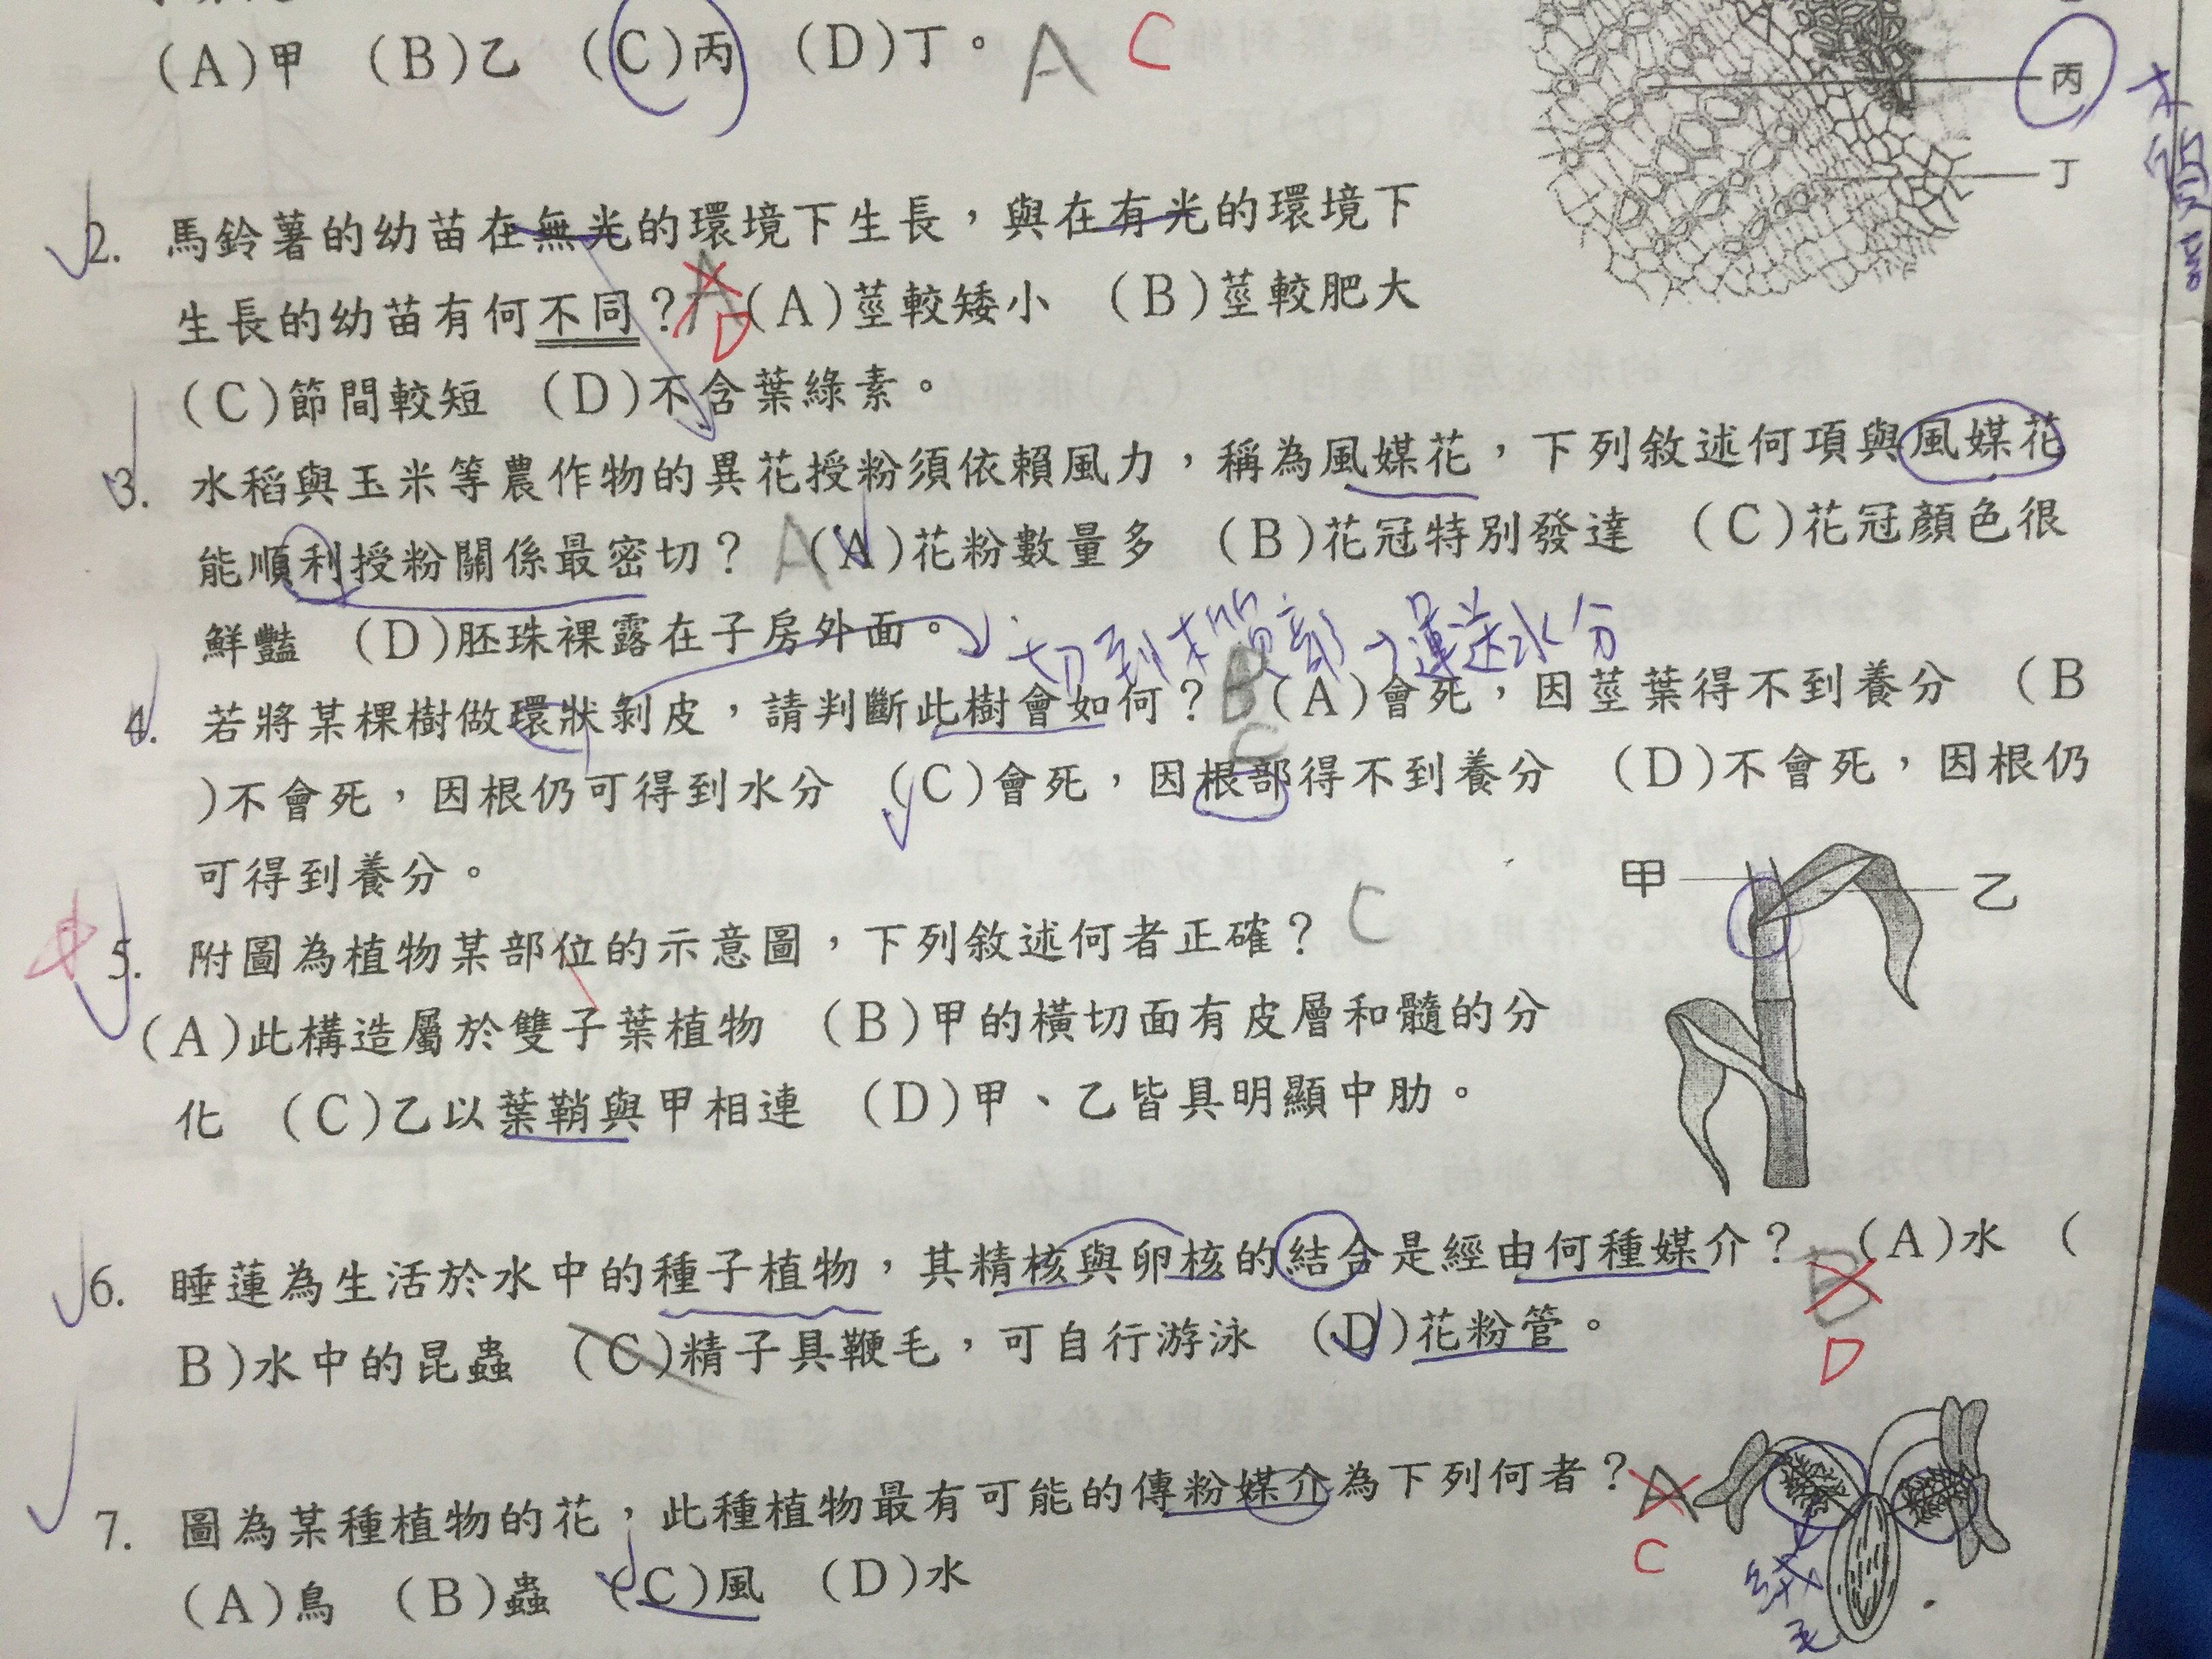 (A)甲 (B)乙 (C)丙 (D)丁。 A C
丙
木質部
丁
2. 馬鈴薯的幼苗在無光的環境下生長，與在有光的環境下
生長的幼苗有何不同？A D (A)莖較矮小 (B)莖較肥大
(C)節間較短 (D)不含葉綠素。
3. 水稻與玉米等農作物的異花授粉須依賴風力，稱為風媒花，下列敘述何項與風媒花
能順利授粉關係最密切？ A (A)花粉數量多 (B)花冠特別發達 (C)花冠顏色很
鮮豔 (D)胚珠裸露在子房外面。
切到木質部→運送水分
4. 若將某棵樹做環狀剝皮，請判斷此樹會如何？ B (A)會死，因莖葉得不到養分 (B
C
)不會死，因根仍可得到水分 (C)會死，因根部得不到養分 (D)不會死，因根仍
可得到養分。
甲
乙
5. 附圖為植物某部位的示意圖，下列敘述何者正確？ C
(A)此構造屬於雙子葉植物 (B)甲的橫切面有皮層和髓的分
化 (C)乙以葉鞘與甲相連 (D)甲、乙皆具明顯中肋。
6. 睡蓮為生活於水中的種子植物，其精核與卵核的結合是經由何種媒介？ B (A)水 (
D
B)水中的昆蟲 (C)精子具鞭毛，可自行游泳 (D)花粉管。
7. 圖為某種植物的花，此種植物最有可能的傳粉媒介為下列何者？ A
C
(A)鳥 (B)蟲 (C)風 (D)水
絨毛